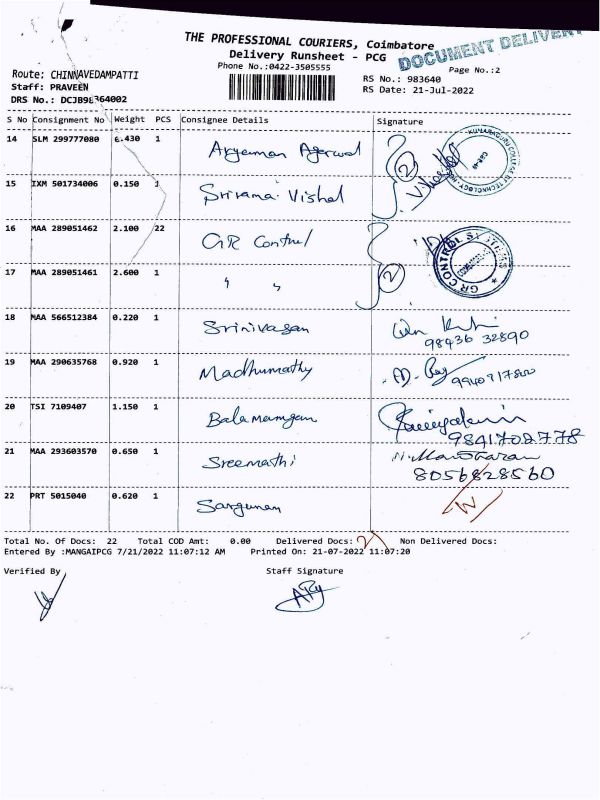 THE PROFESSIONAL COURIERS, Coimbatore
Delivery Runsheet - PCG
DOCUMENT DELIVERY
Phone No.:0422-3505555
Page No.:2
Route: CHINNAVEDAMPATTI
Staff: PRAVEEN
DRS No.: DCJB98364002
RS No.: 983640
RS Date: 21-Jul-2022
S No Consignment No Weight PCS Consignee Details Signature
14 SLM 299777080 6.430 1 Aryaman Agerwal 2
KUMARAGURU COLLEGE OF TECHNOLOGY
15 IXM 501734006 0.150 1 Srirama Vishal Vishal
16 MAA 289051462 2.100 22 GR Control
GR CONTROL SYSTEMS
17 MAA 289051461 2.600 1 " " 2
18 MAA 566512384 0.220 1 Srinivasan
98436 32890
19 MAA 290635768 0.920 1 Madhumathy
20 TSI 7109407 1.150 1
9841702778
21 MAA 293603570 0.650 1 Sreemathi Manoharan
8056828560
22 PRT 5015040 0.620 1 Sargunam
Total No. Of Docs: 22 Total COD Amt: 0.00 Delivered Docs: 21 Non Delivered Docs:
Entered By :MANGAIPCG 7/21/2022 11:07:12 AM Printed On: 21-07-2022 11:07:20
Verified By Staff Signature